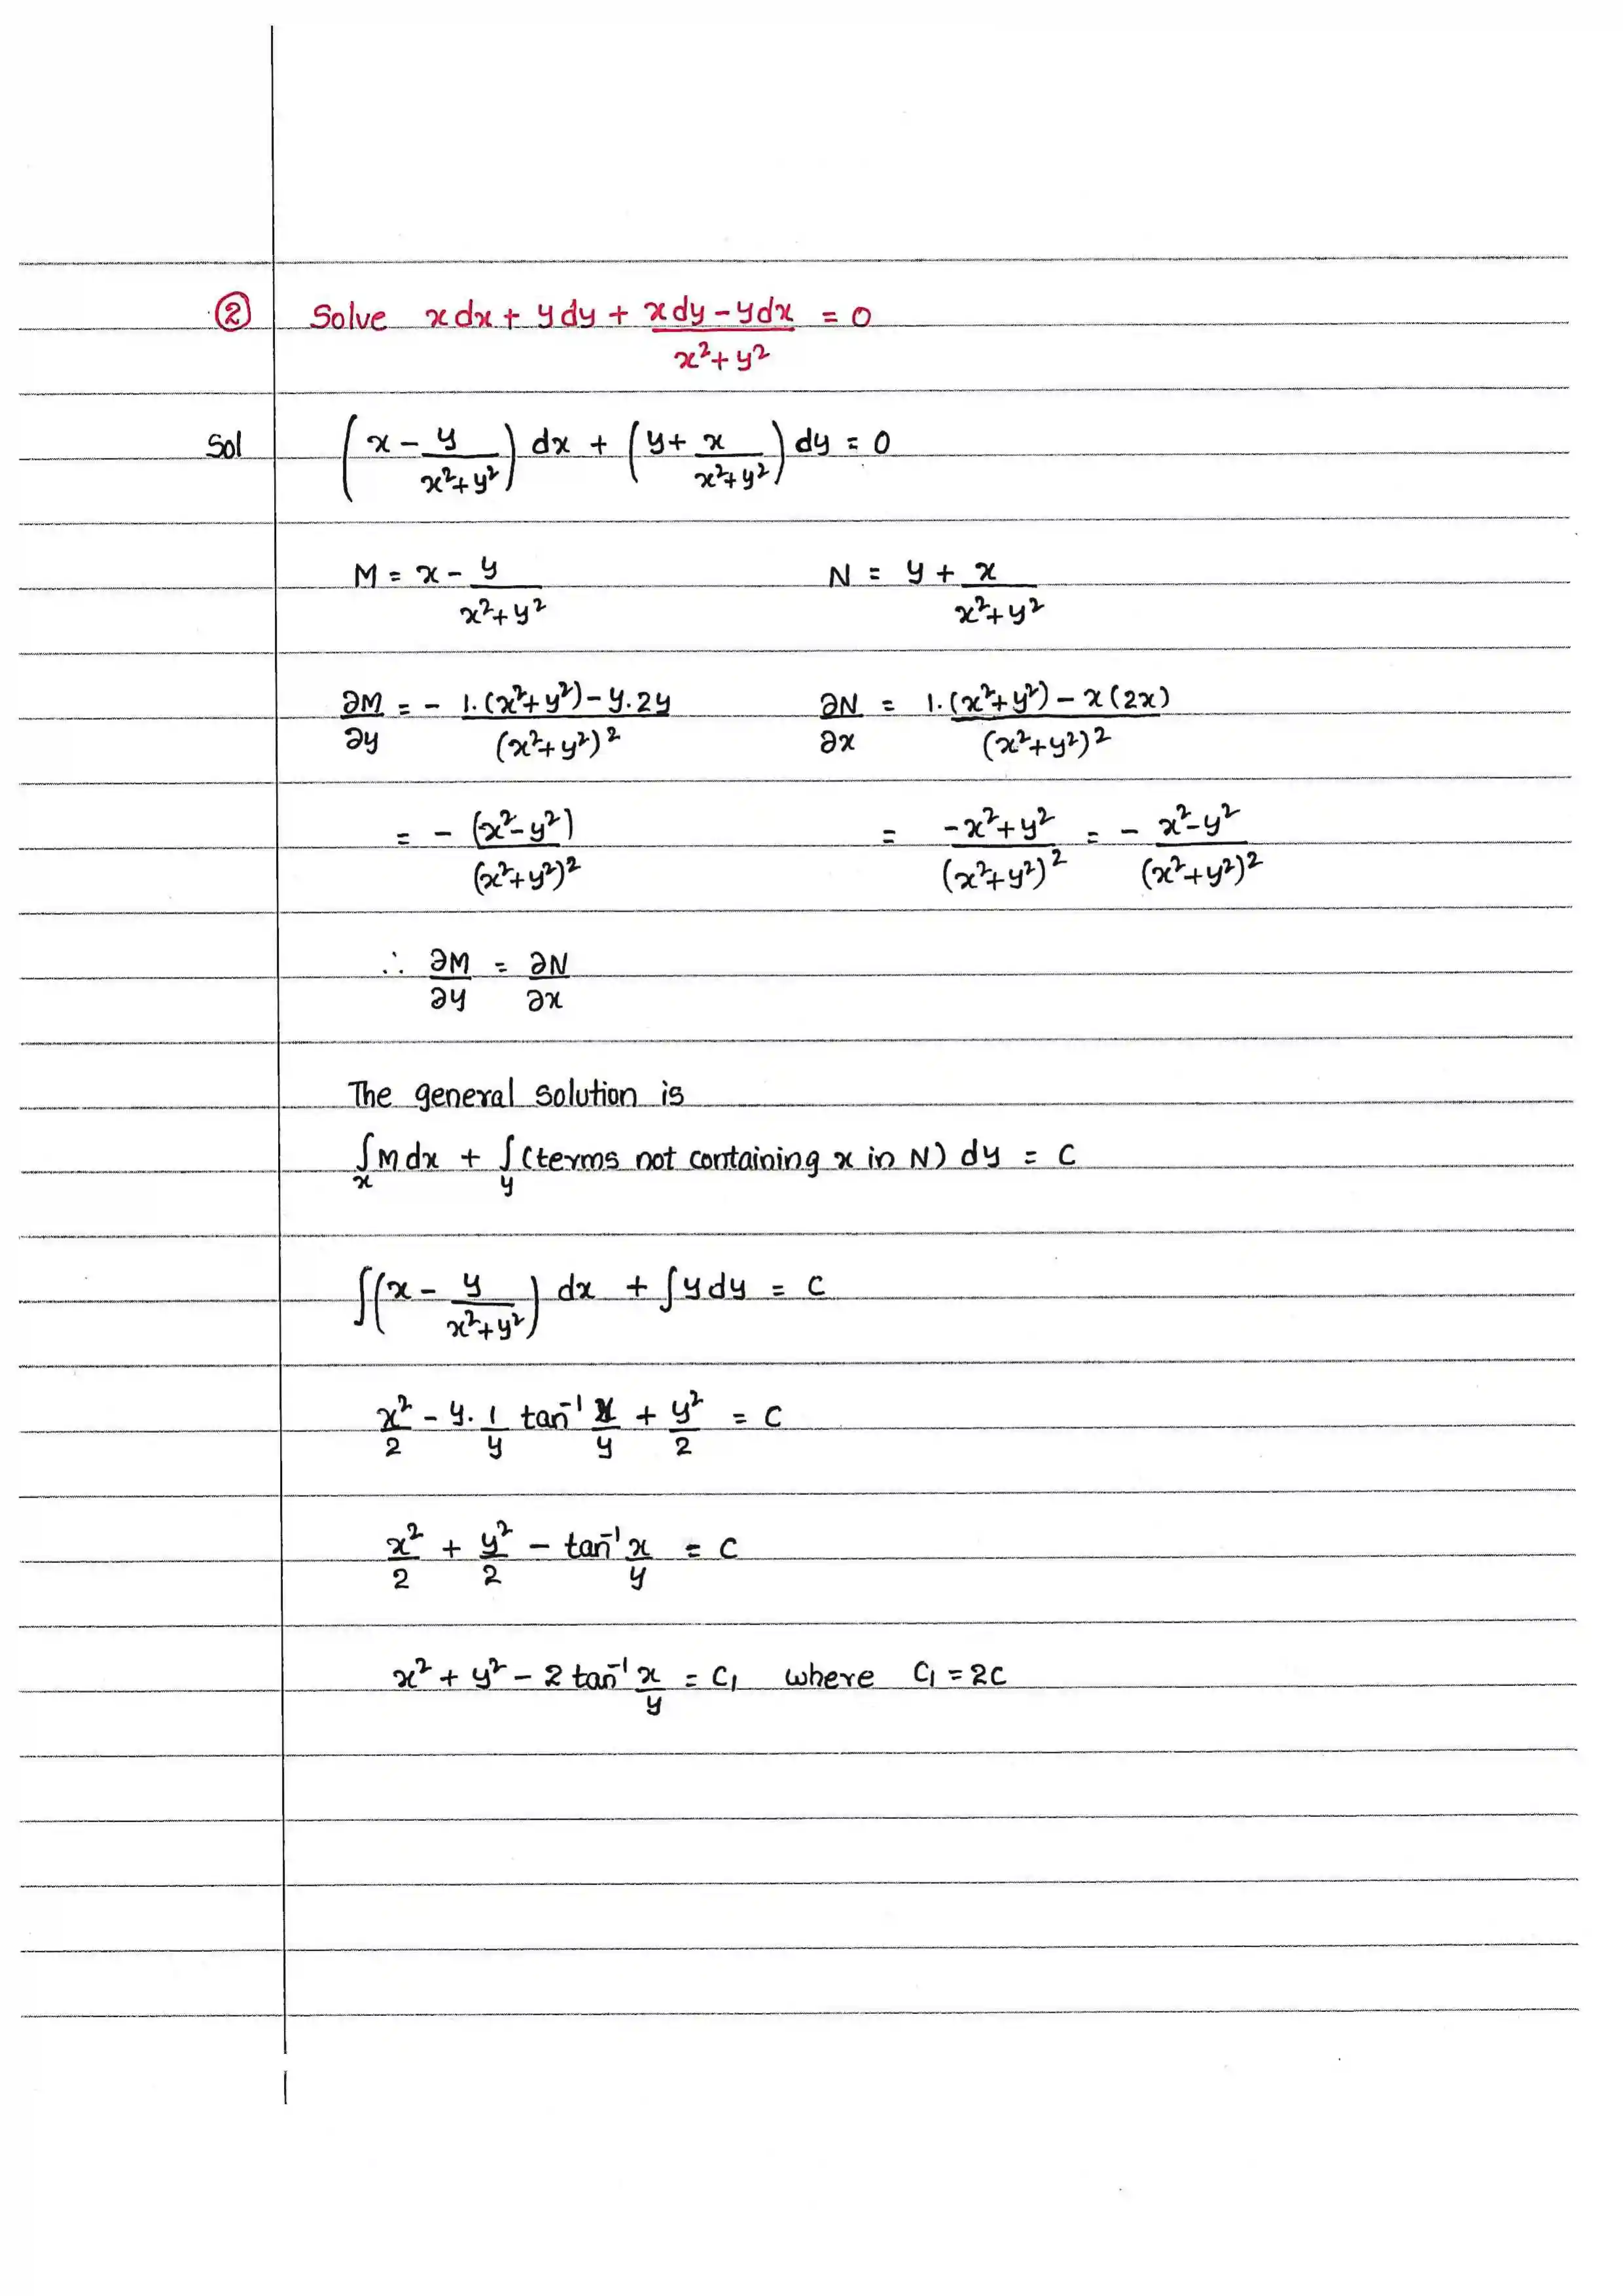 ② Solve x dx + y dy + (x dy − y dx)/(x² + y²) = 0
Sol (x − y/(x² + y²)) dx + (y + x/(x² + y²)) dy = 0
M = x − y/(x² + y²) N = y + x/(x² + y²)
∂M/∂y = − (1.(x² + y²) − y.2y)/(x² + y²)² ∂N/∂x = (1.(x² + y²) − x(2x))/(x² + y²)²
= − (x² − y²)/(x² + y²)² = (−x² + y²)/(x² + y²)² = − (x² − y²)/(x² + y²)²
∴ ∂M/∂y = ∂N/∂x
The general solution is
∫ₓ M dx + ∫ᵧ (terms not containing x in N) dy = C
∫(x − y/(x² + y²)) dx + ∫ y dy = C
x²/2 − y. 1/y tan⁻¹ x/y + y²/2 = C
x²/2 + y²/2 − tan⁻¹ x/y = C
x² + y² − 2 tan⁻¹ x/y = C₁ where C₁ = 2C